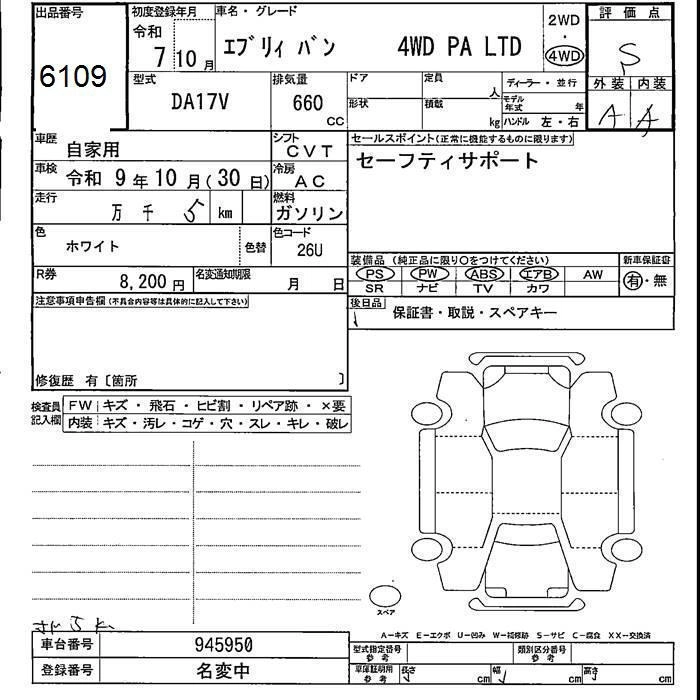 出品番号
6109
初度登録年月
令和
7 10 月
車名・グレード
エブリィ バン 4WD PA LTD
2WD
・
4WD
評価点
S
外装 内装
A A
型式
DA17V
排気量
660
CC
ドア
形状
定員
人
積載
kg
ディーラー・並行
モデル
年式
年
ハンドル 左・右
車歴
自家用
シフト
CVT
車検
令和 9 年 10 月(30 日)
冷房
AC
走行
万 千 5 km
燃料
ガソリン
色
ホワイト
色替
色コード
26U
R券
8,200 円
名変通知期限
月 日
セールスポイント(正常に機能するものに限ります)
セーフティサポート
装備品 (純正品に限り○をつけてください)
新車保証書
PS PW ABS エアB AW
SR ナビ TV カワ
有・無
後日品
保証書・取説・スペアキー
注意事項申告欄(不具合内容等は具体的に記入して下さい)
修復歴 有〔箇所 〕
検査員
記入欄
FW キズ・飛石・ヒビ割・リペア跡・×要
内装 キズ・汚レ・コゲ・穴・スレ・キレ・破レ
スペア
5 K
A-キズ E-エクボ U-凹み W-補修跡 S-サビ C-腐食 XX-交換済
車台番号
945950
登録番号
名変中
型式指定番号
参考
類別区分番号
参考
車庫証明用
参考
長さ
cm
幅
cm
高さ
cm